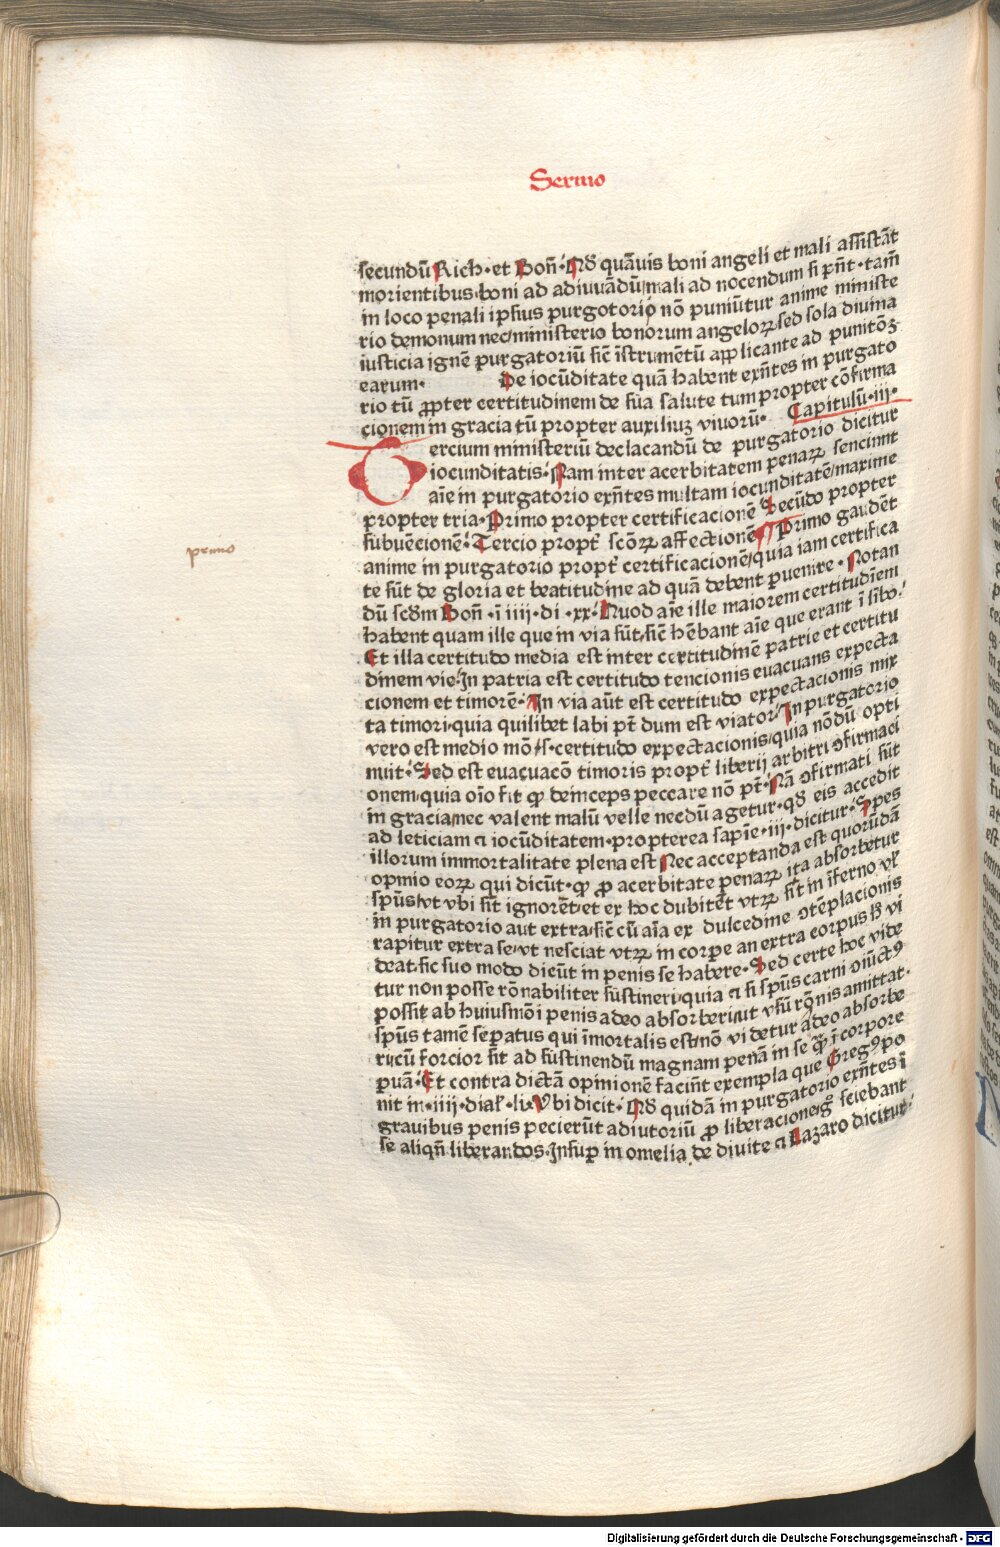 Sermo
secundū Rich·et Boñ·Nā quāuis boni angeli et mali assistāt
morientibus·boni ad adiuuādū/mali ad nocendum si pn̄t·tam̄
in loco penali ipsius purgotorio nō puniūtur anime ministe
rio demonum nec/ministerio bonorum angeloꝝ sed sola diuina
iusticia ignē purgatoriū sic̄ īstrumētū applicante ad punitōꝫ
earum· De iocūditate quā habent exn̄tes in purgato
rio tū ꝓpter certitudinem de sua salute tum propter cōfirma
cionem in gracia tū propter auxiliuꝫ viuorū· Capitulū·iii·
Tercium ministeriū declacandū de purgatorio dicitur
iocunditatis·Nam inter acerbitatem penaꝝ senciunt
aīe in purgatorio exn̄tes multam iocunditatē/maxime
propter tria·Primo propter certificacionē Secūdo propter
subuēcionē·Tercio propt̄ scōꝝ affectionē ¶ Primo gaudēt
anime in purgatorio propt̄ certificacionē/quia iam certifica
te sūt de gloria et beatitudine ad quā debent puenire·Notan
dū scd̄m Boñ·ī iiii·di·xx·Quod aīe ille maiorem certitudīem
habent quam ille que in via sūt/sic̄ hēbant aīe que erant ī lībo·
Et illa certitudo media est inter certitudinē patrie et certitu
dinem vie·In patria est certitudo tencionis euacuans expecta
cionem et timorē·In via aūt est certitudo expectacionis mix
ta timori·quia quilibet labi pt̄ dum est viator·In purgatorio
vero est medio mō/s·certitudo expectacionis/quia nōdū opti
nuit·Sed est euacuacō timoris propt̄ liberij arbitri ꝯfirmaci
onem·quia oīo fit ꝙ deinceps peccare nō pt̄·Nā ꝯfirmati sūt
in gracia/nec valent malū velle necdū agetur·qd̄ eis accedit
ad leticiam ⁊ iocūditatem·propterea sapīe·iii·dicitur·Spes
illorum immortalitate plena est Nec acceptanda est quorūdā
opinio eoꝝ qui dicūt·ꝙ ꝓ acerbitate penaꝝ ita absorbetur
spūs/vt vbi sit ignorēt·et ex hoc dubitēt vtꝝ sit in īferno vl̄
in purgatorio aut extra·sic̄ cū aīa ex dulcedine ꝯtēplacionis
rapitur extra se·vt nesciat vtꝝ in corpe an extra corpus sʒ vi
deat·sic suo modo dicūt in penis se habere·Sed certe hoc vide
tur non posse rōnabiliter sustineri·quia ⁊ si spūs carni ꝯiūctꝰ
possit ab huiusmōi penis adeo absorberi·ut vsū rōnis amittat·
spūs tamē sepatus qui īmortalis est/nō videtur adeo absorbe
ri·cū forcior sit ad sustinendū magnam penā in se ꝙ̄ ī corpore
puā·Et contra dictā opinionē faciūt exempla que Gregꝰ po
nit in·iiii·dial̄·li·Vbi dicit·Nā quidā in purgatorio exn̄tes ī
grauibus penis pecierūt adiutoriū ꝓ liberacione·g̊ sciebant
se aliqn̄ liberandos·Insup in omelia de diuite ⁊ Lazaro dicitur·
primo
Digitalisierung gefördert durch die Deutsche Forschungsgemeinschaft - DFG